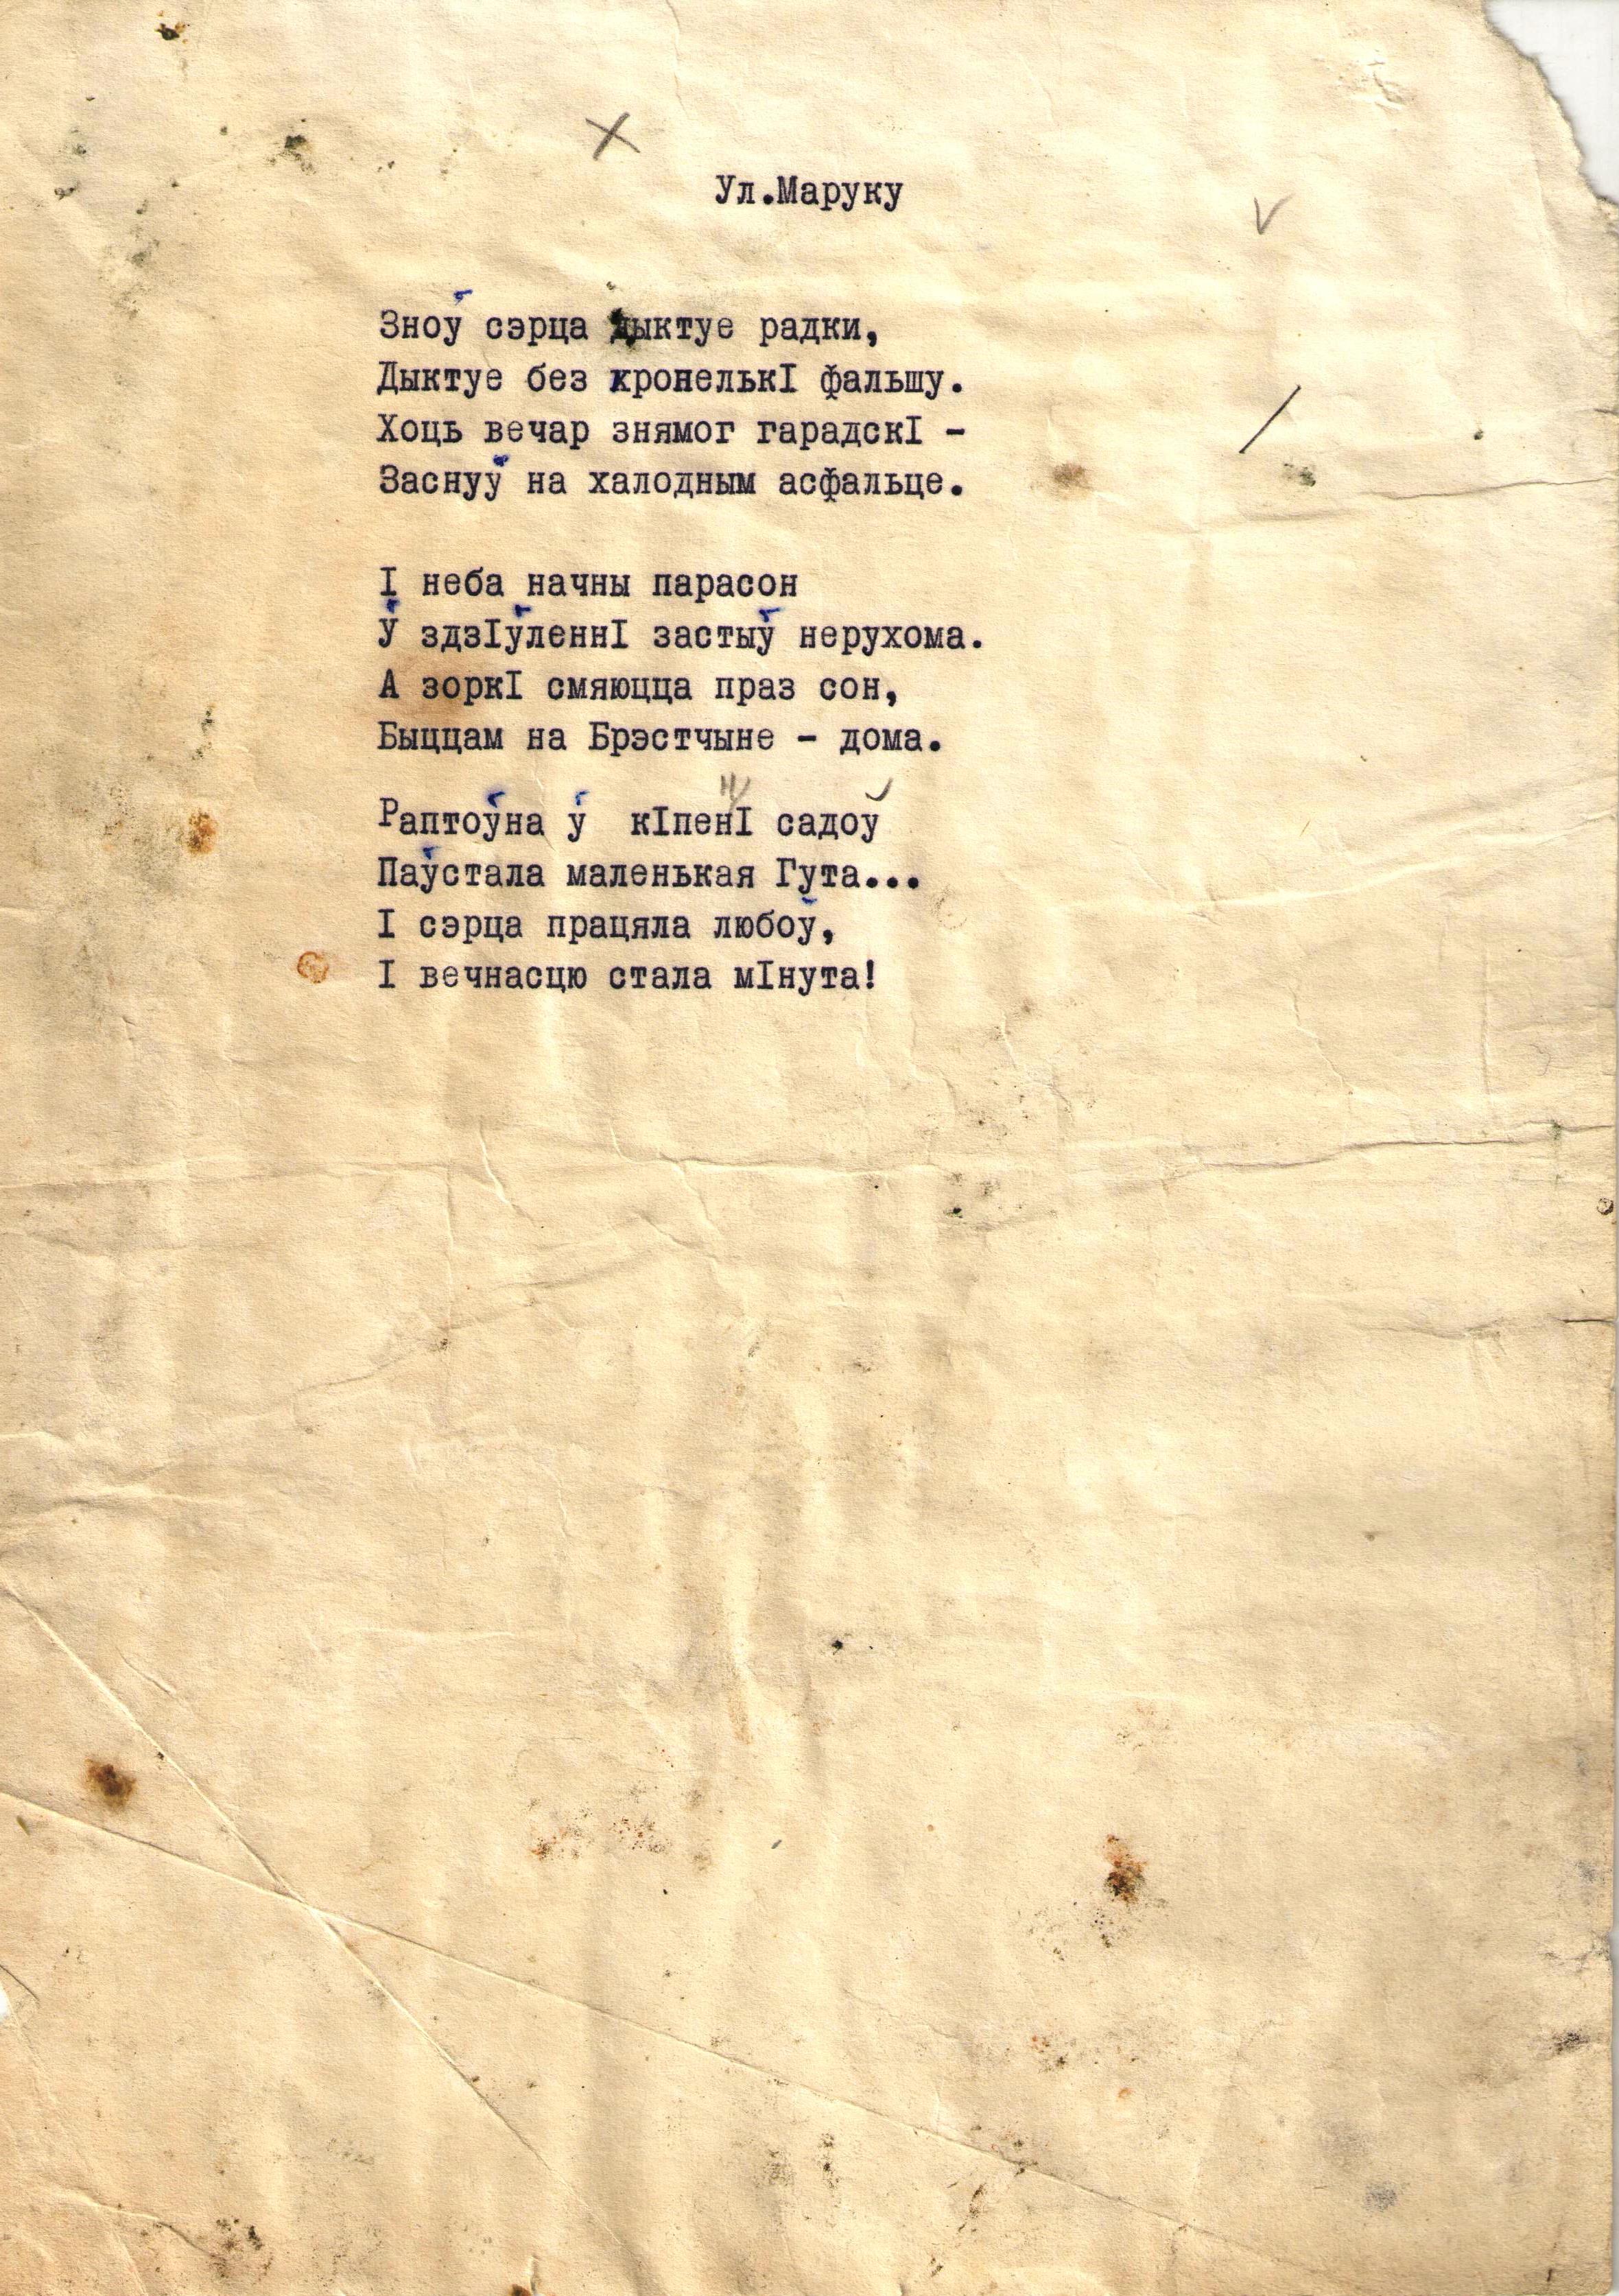 Ул.Маруку
Зноў сэрца дыктуе радки,
Дыктуе без кронелькІ фальшу.
Хоць вечар знямог гарадскІ -
Заснуў на халодным асфальце.
І неба начны парасон
Ў здзІўленнІ застыў нерухома.
А зоркІ смяюцца праз сон,
Быццам на Брэстчыне - дома.
Раптоўна ў кІпенІ садоў
Паўстала маленькая Гута...
І сэрца працяла любоў,
І вечнасцю стала мІнута!